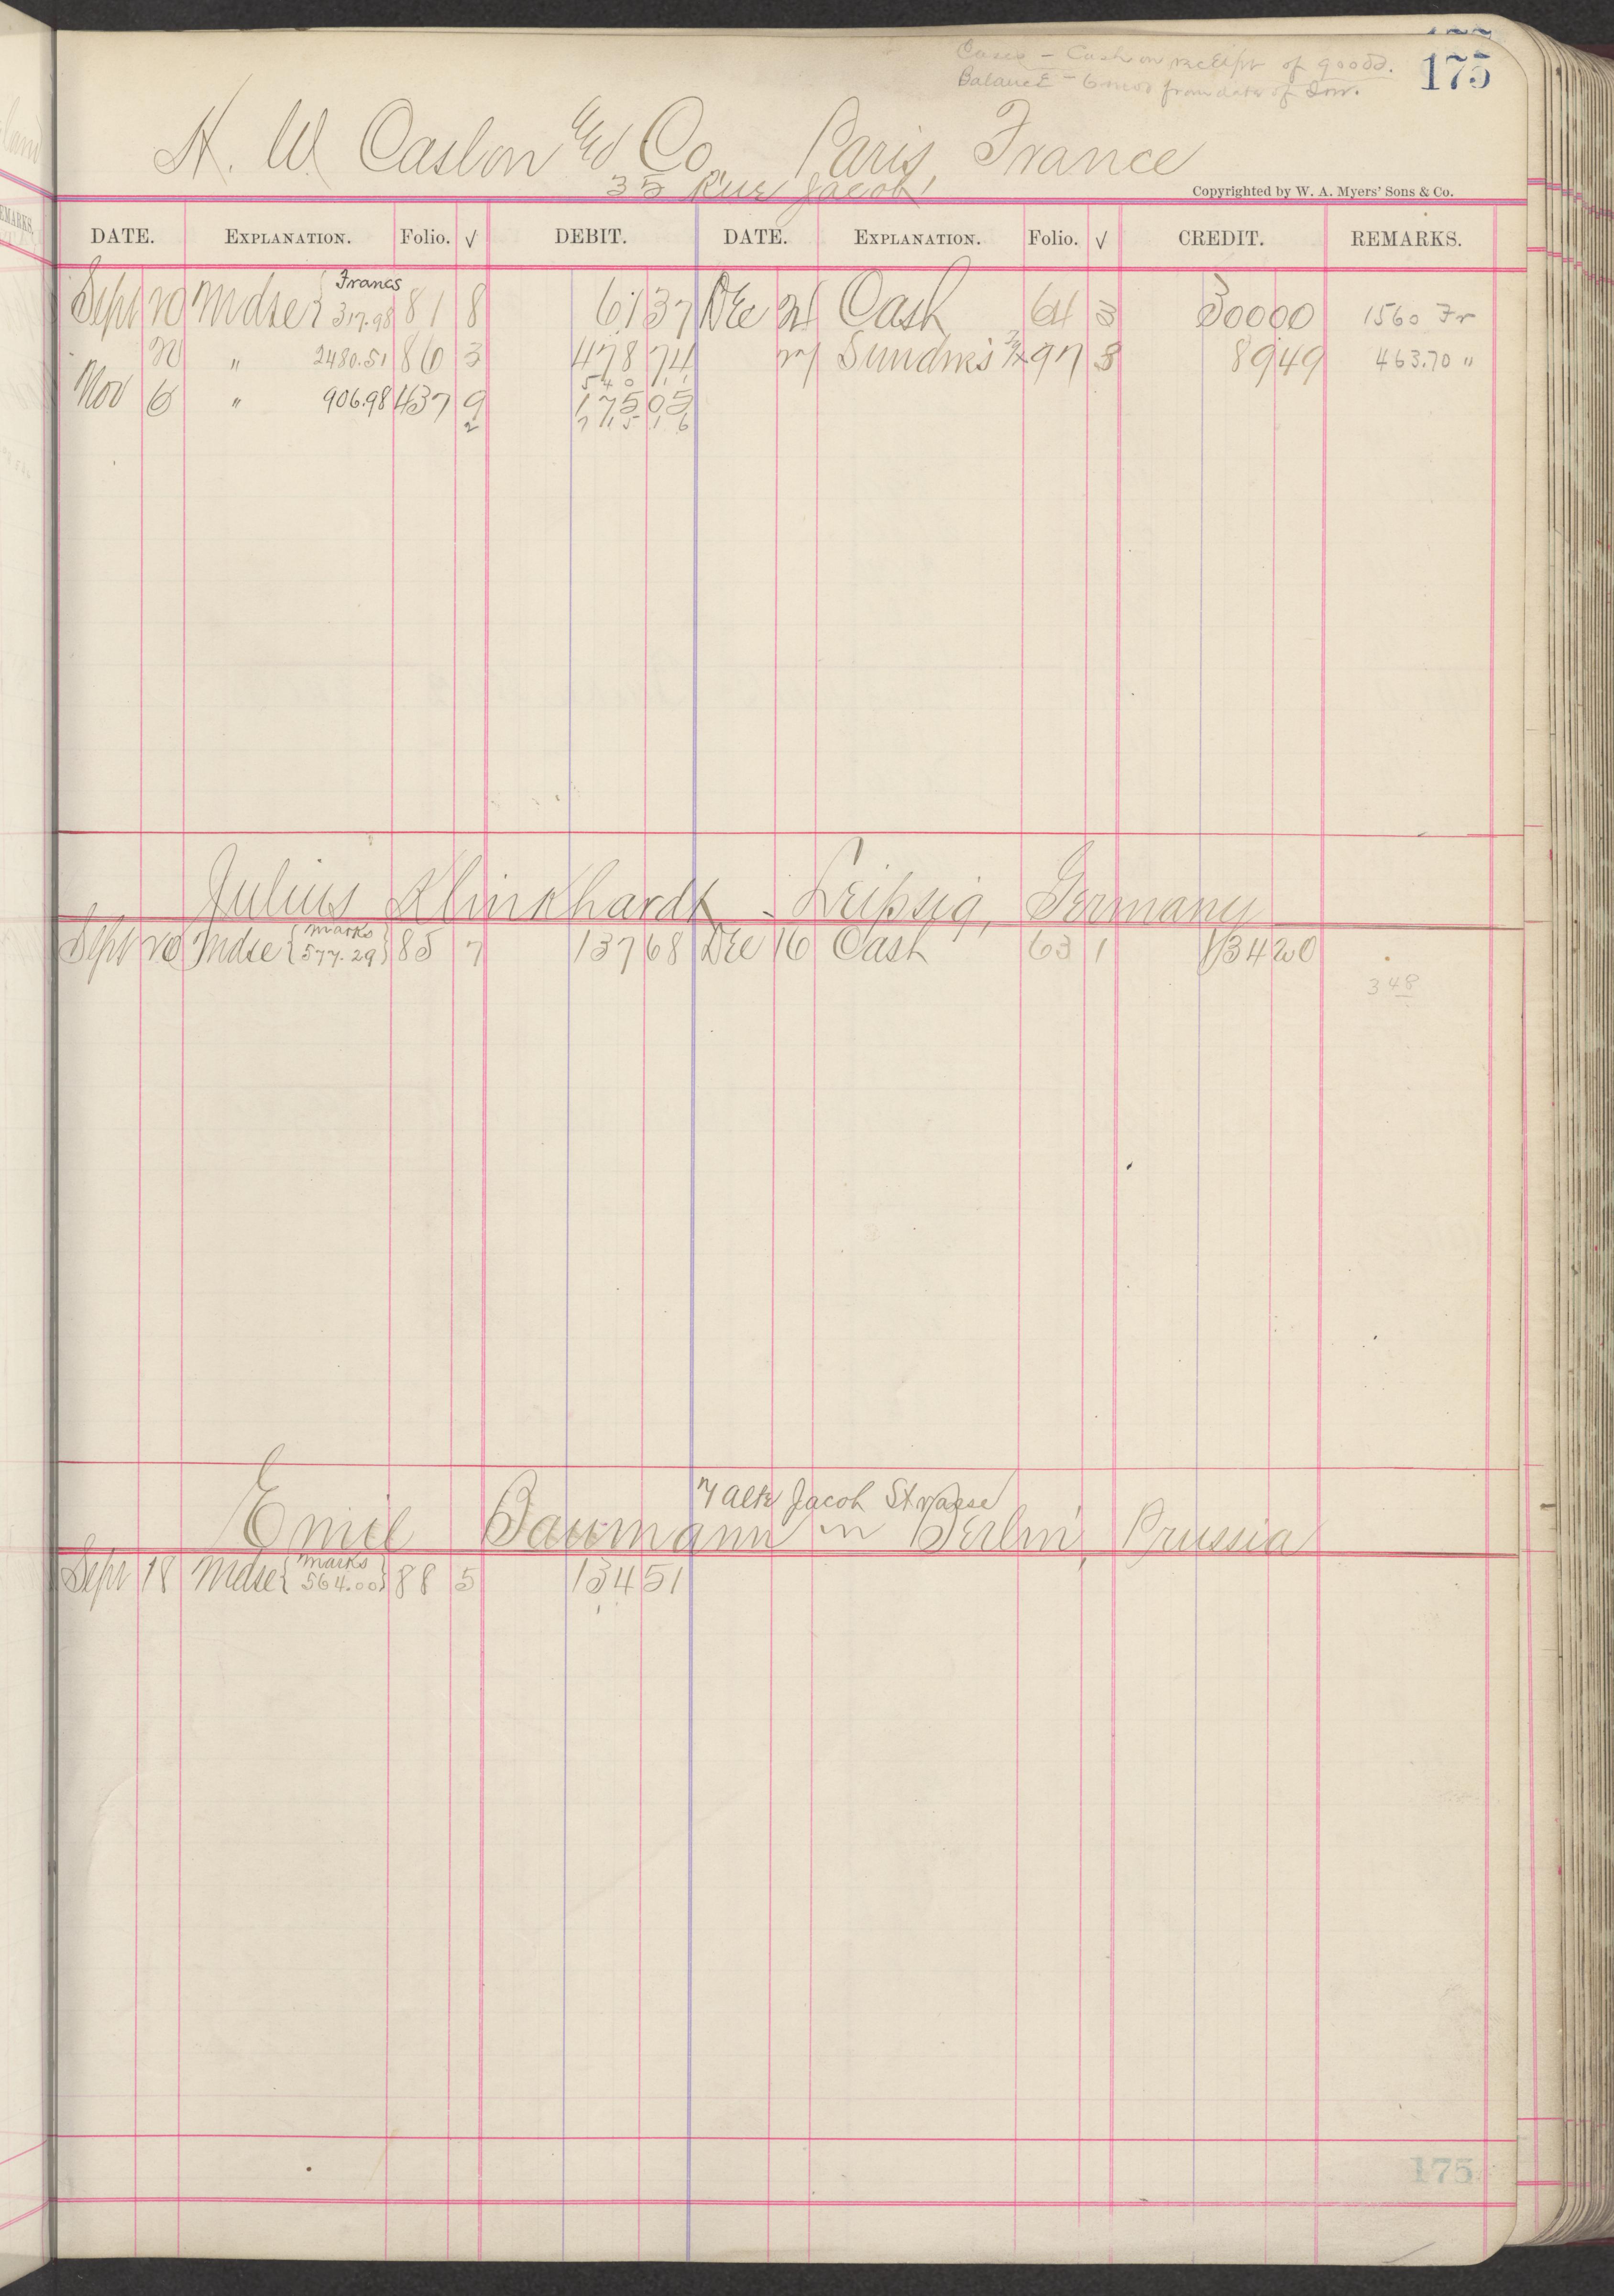 Cases - Cash on receipt of goods. 175
Balance - 6 mos from date of Inv.
H. W. Caslon & Co. Paris, France
35 Rue Jacob
Copyrighted by W. A. Myers' Sons & Co.
DATE. EXPLANATION. Folio. √ DEBIT. DATE. EXPLANATION. Folio. √ CREDIT. REMARKS.
Francs
Sept 10 Mdse 317.98 81 8 61 37 Dec 21 Cash 64 3 300 00 1560 Fr
" 2480.51 86 3 478 74 Sundries 97 8 89 49 463.70 "
540 11
Nov 6 " 906.98 437 9 175 05
2 715 16
Julius Klinkhardt - Leipsig, Germany
Marks
Sept 10 Mdse 577.29 85 7 137 68 Dec 16 Cash 63 1 134 20
348
7 Alte Jacob Strasse
Emil Baumann in Berlin, Prussia
Marks
Sept 18 Mdse 564.00 88 5 134 51
175